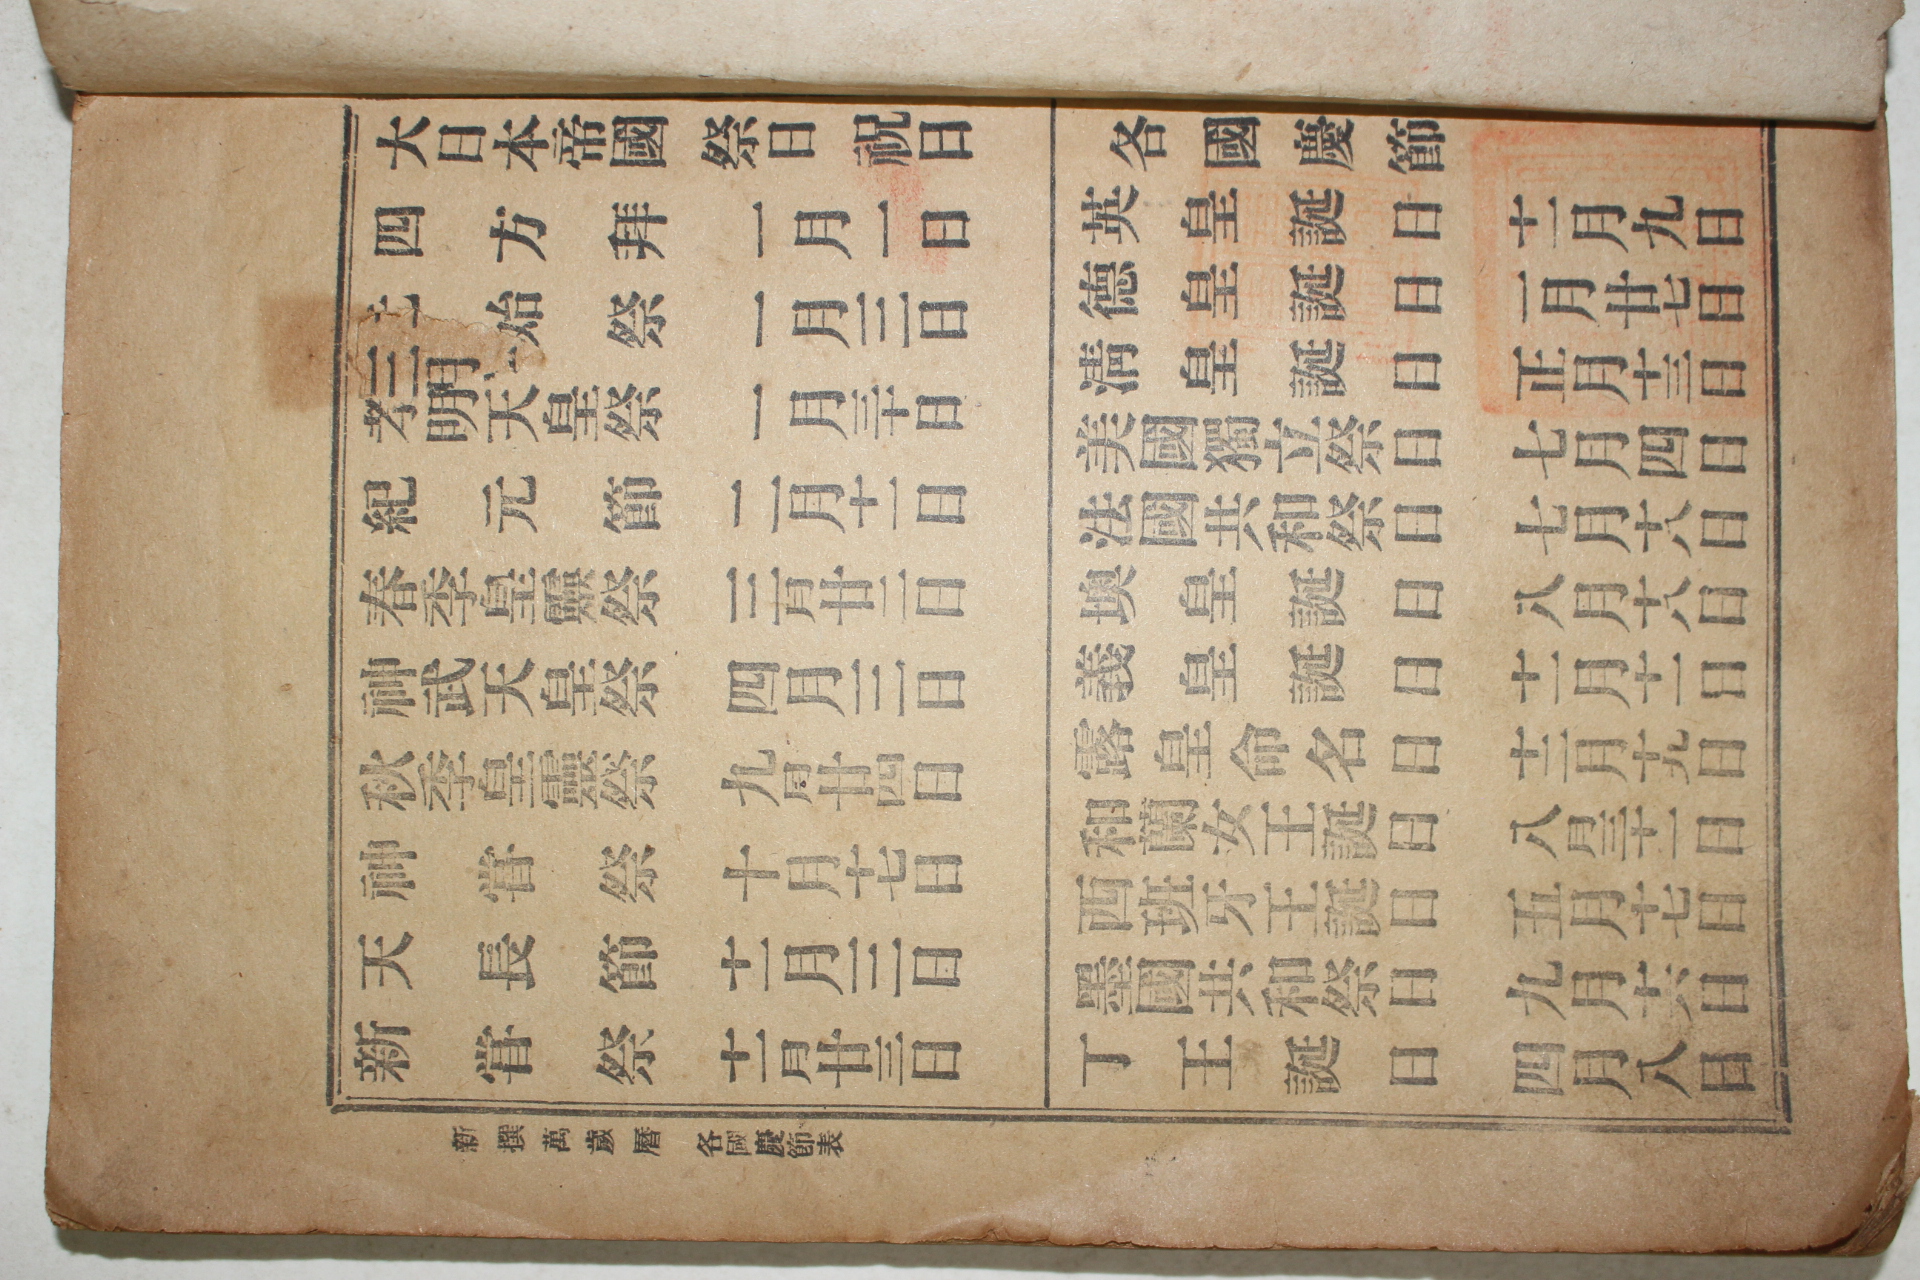 大日本帝國祭日祝日
四方拜 一月一日
始祭 一月三日
孝明天皇祭 一月三十日
紀元節 二月十一日
春季皇靈祭 三月廿二日
神武天皇祭 四月三日
秋季皇靈祭 九月廿四日
神嘗祭 十月十七日
天長節 十一月三日
新嘗祭 十一月廿三日
各國慶節
英皇誕日 十一月九日
德皇誕日 一月廿七日
淸皇誕日 正月十三日
美國獨立祭日 七月四日
法國共和祭日 七月十八日
墺皇誕日 八月十八日
義皇誕日 十一月十一日
露皇命名日 十二月十九日
和蘭女王誕日 八月三十一日
西班牙王誕日 五月十七日
墨國共和祭日 九月十六日
丁王誕日 四月八日
新撰萬歲曆 各國慶節表